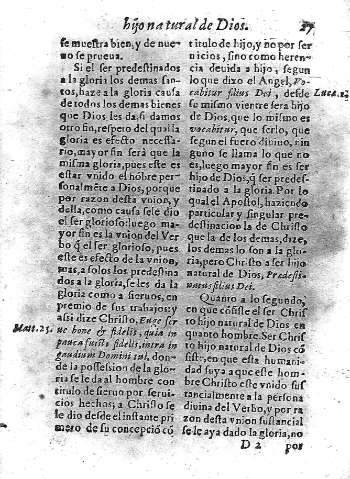 hijo natural de Dios. 27
se muestra bien, y de nue-
uo se prueua.
Si el ser predestinados
a la gloria los demas san-
tos, haze a la gloria causa
de todos los demas bienes
que Dios les da, si damos
otro fin, respeto del qual la
gloria es efecto necessa-
rio, mayor fin serà que la
misma gloria, pues este es
estar vnido el hõbre per-
sonalmẽte a Dios, porque
por razon desta vnion, y
della, como causa se le dio
el ser glorioso: luego ma-
yor fin es la vnion del Ver
bo q̃ el ser glorioso, pues
esse es efecto de la vnion,
mas, a solos los predestina
dos a la gloria, se les da la
gloria como a sieruos, en
premio de sus trabajos, y
assi dize Christo, Euge ser
Matt. 25. ue bone & fidelis, quia in
pauca fuisti fidelis, intra in
gaudium Domini tui, don-
de la possession de la glo-
ria se le da al hombre con
titulo de sieruo por serui-
cios hechos; a Christo se
le dio desde el instante pri
mero de su concepciõ cõ
titulo de hijo, y no por ser
uicios, sino como heren-
cia deuida a hijo, segun
lo que dixo el Angel, Vo-
cabitur filius Dei, desde Luca. 1.
su mismo vientre serà hijo
de Dios, que lo mismo es
vocabitur, que serlo, que
segun el fuero diuino, nin
guno se llama lo que no
es, luego mayor fin es ser
hijo de Dios, q̃ ser predes-
tinado a la gloria. Por lo
qual el Apostol, haziendo
particular y singular pre-
destinacion la de Christo
que la de los demas, dize,
los demas lo son a la glo-
ria, pero Christo a ser hijo
natural de Dios, Predesti-
natus filius Dei.
Quanto a lo segundo,
en que cõsiste el ser Chris
to hijo natural de Dios en
quanto hombre. Ser Chris
to hijo natural de Dios cõ
siste, en que esta humani-
dad suya a que este hom-
bre Christo este vnido sus
tancialmente a la persona
diuina del Verbo, y por ra
zon desta vnion sustancial
se le aya dado la gloria, no
D 2 por